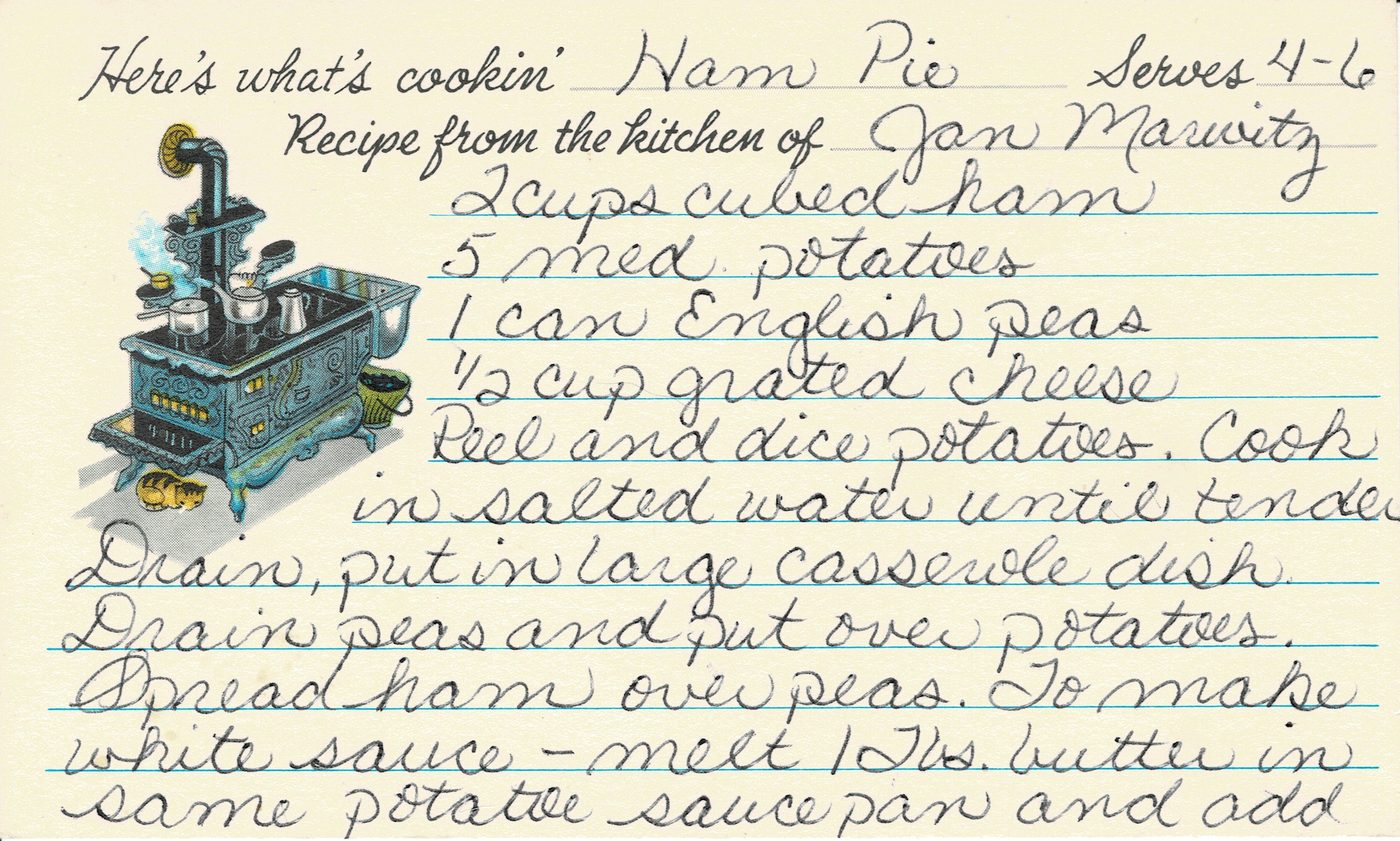 Here's what's cookin' Ham Pie Serves 4-6
Recipe from the kitchen of Jan Marwitz
2 cups cubed ham
5 med. potatoes
1 can English peas
1/2 cup grated cheese
Peel and dice potatoes. Cook
in salted water until tender
Drain, put in large casserole dish.
Drain peas and put over potatoes.
Spread ham over peas. To make
white sauce - melt 1 Tbs. butter in
same potatoe sauce pan and add